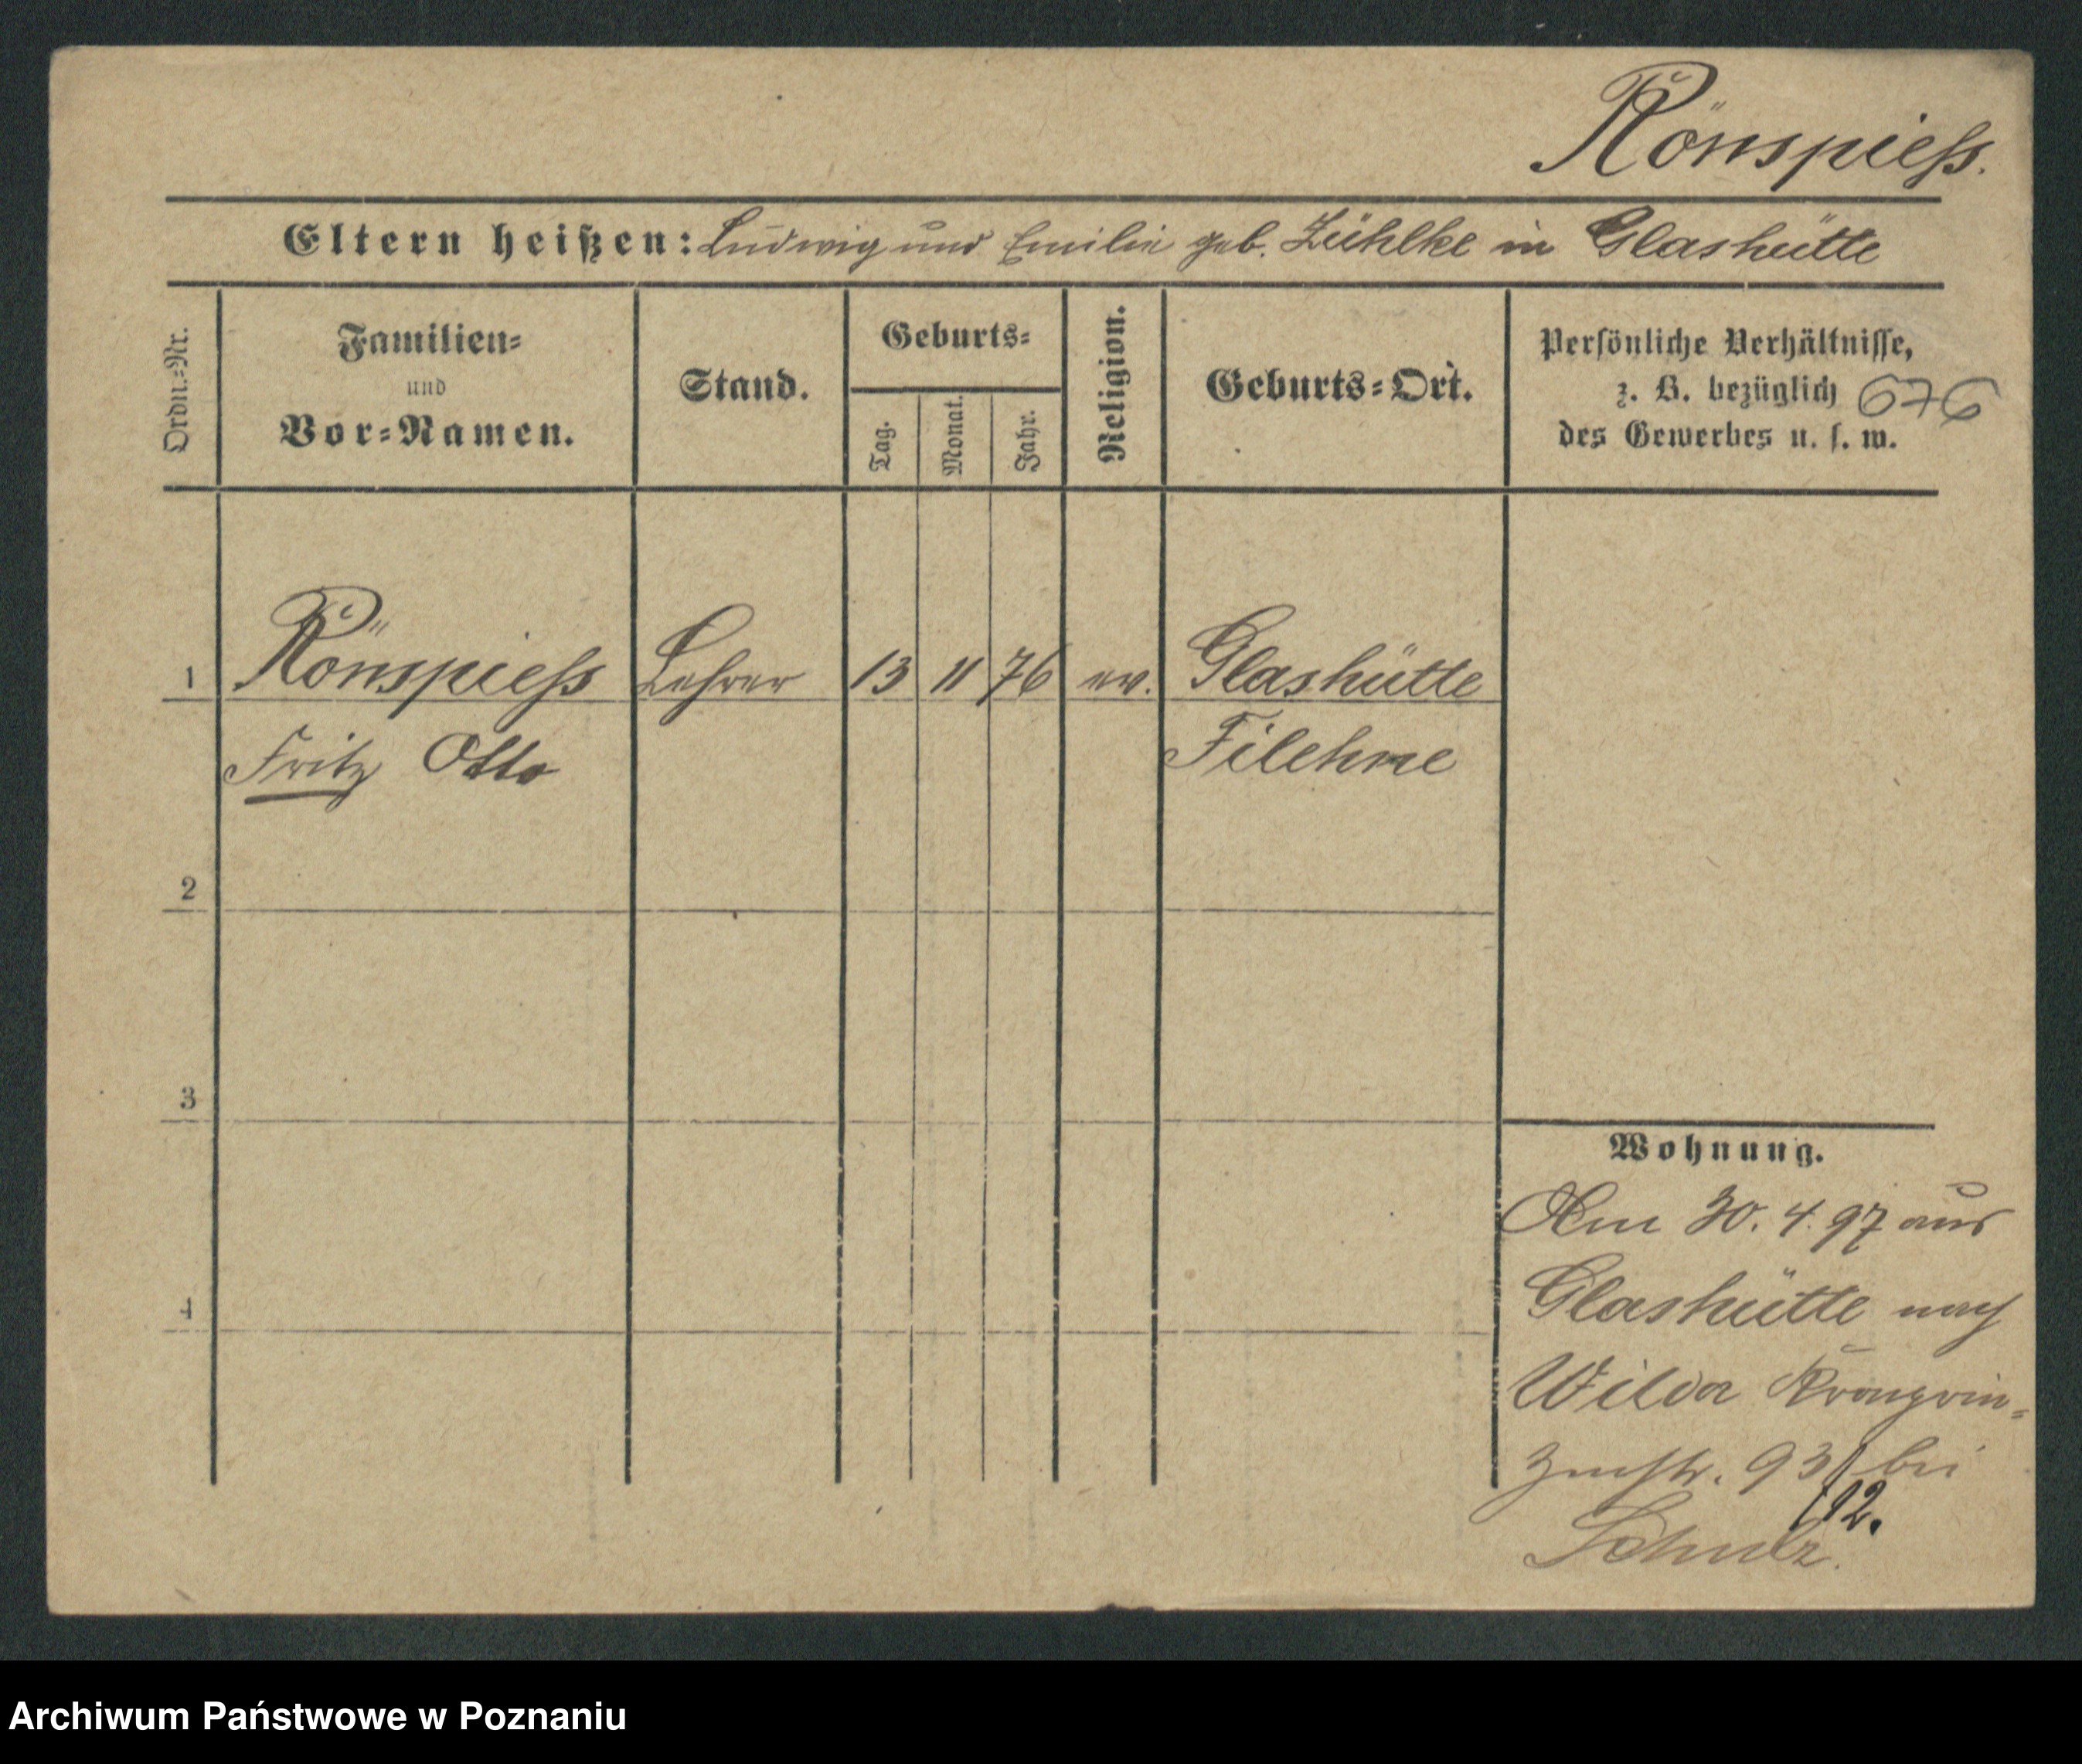 Rönspieß.
Eltern heißen: Ludwig und Emilie geb. Zühlke in Glashütte
Ordn.=Nr.
Familien=
und
Vor=Namen.
Stand.
Geburts=
Tag.
Monat.
Jahr.
Religion.
Geburts=Ort.
Persönliche Verhältnisse,
z. B. bezüglich
des Gewerbes u. s. w.
676
1 Rönspieß Lehrer 13 11 76 ev. Glashütte
Fritz Otto Filehne
2
3
4
Wohnung.
Am 30. 4. 97 aus
Glashütte nach
Wilda Kronprin=
zenstr. 93 bei
/12.
Schulz.
Archiwum Państwowe w Poznaniu